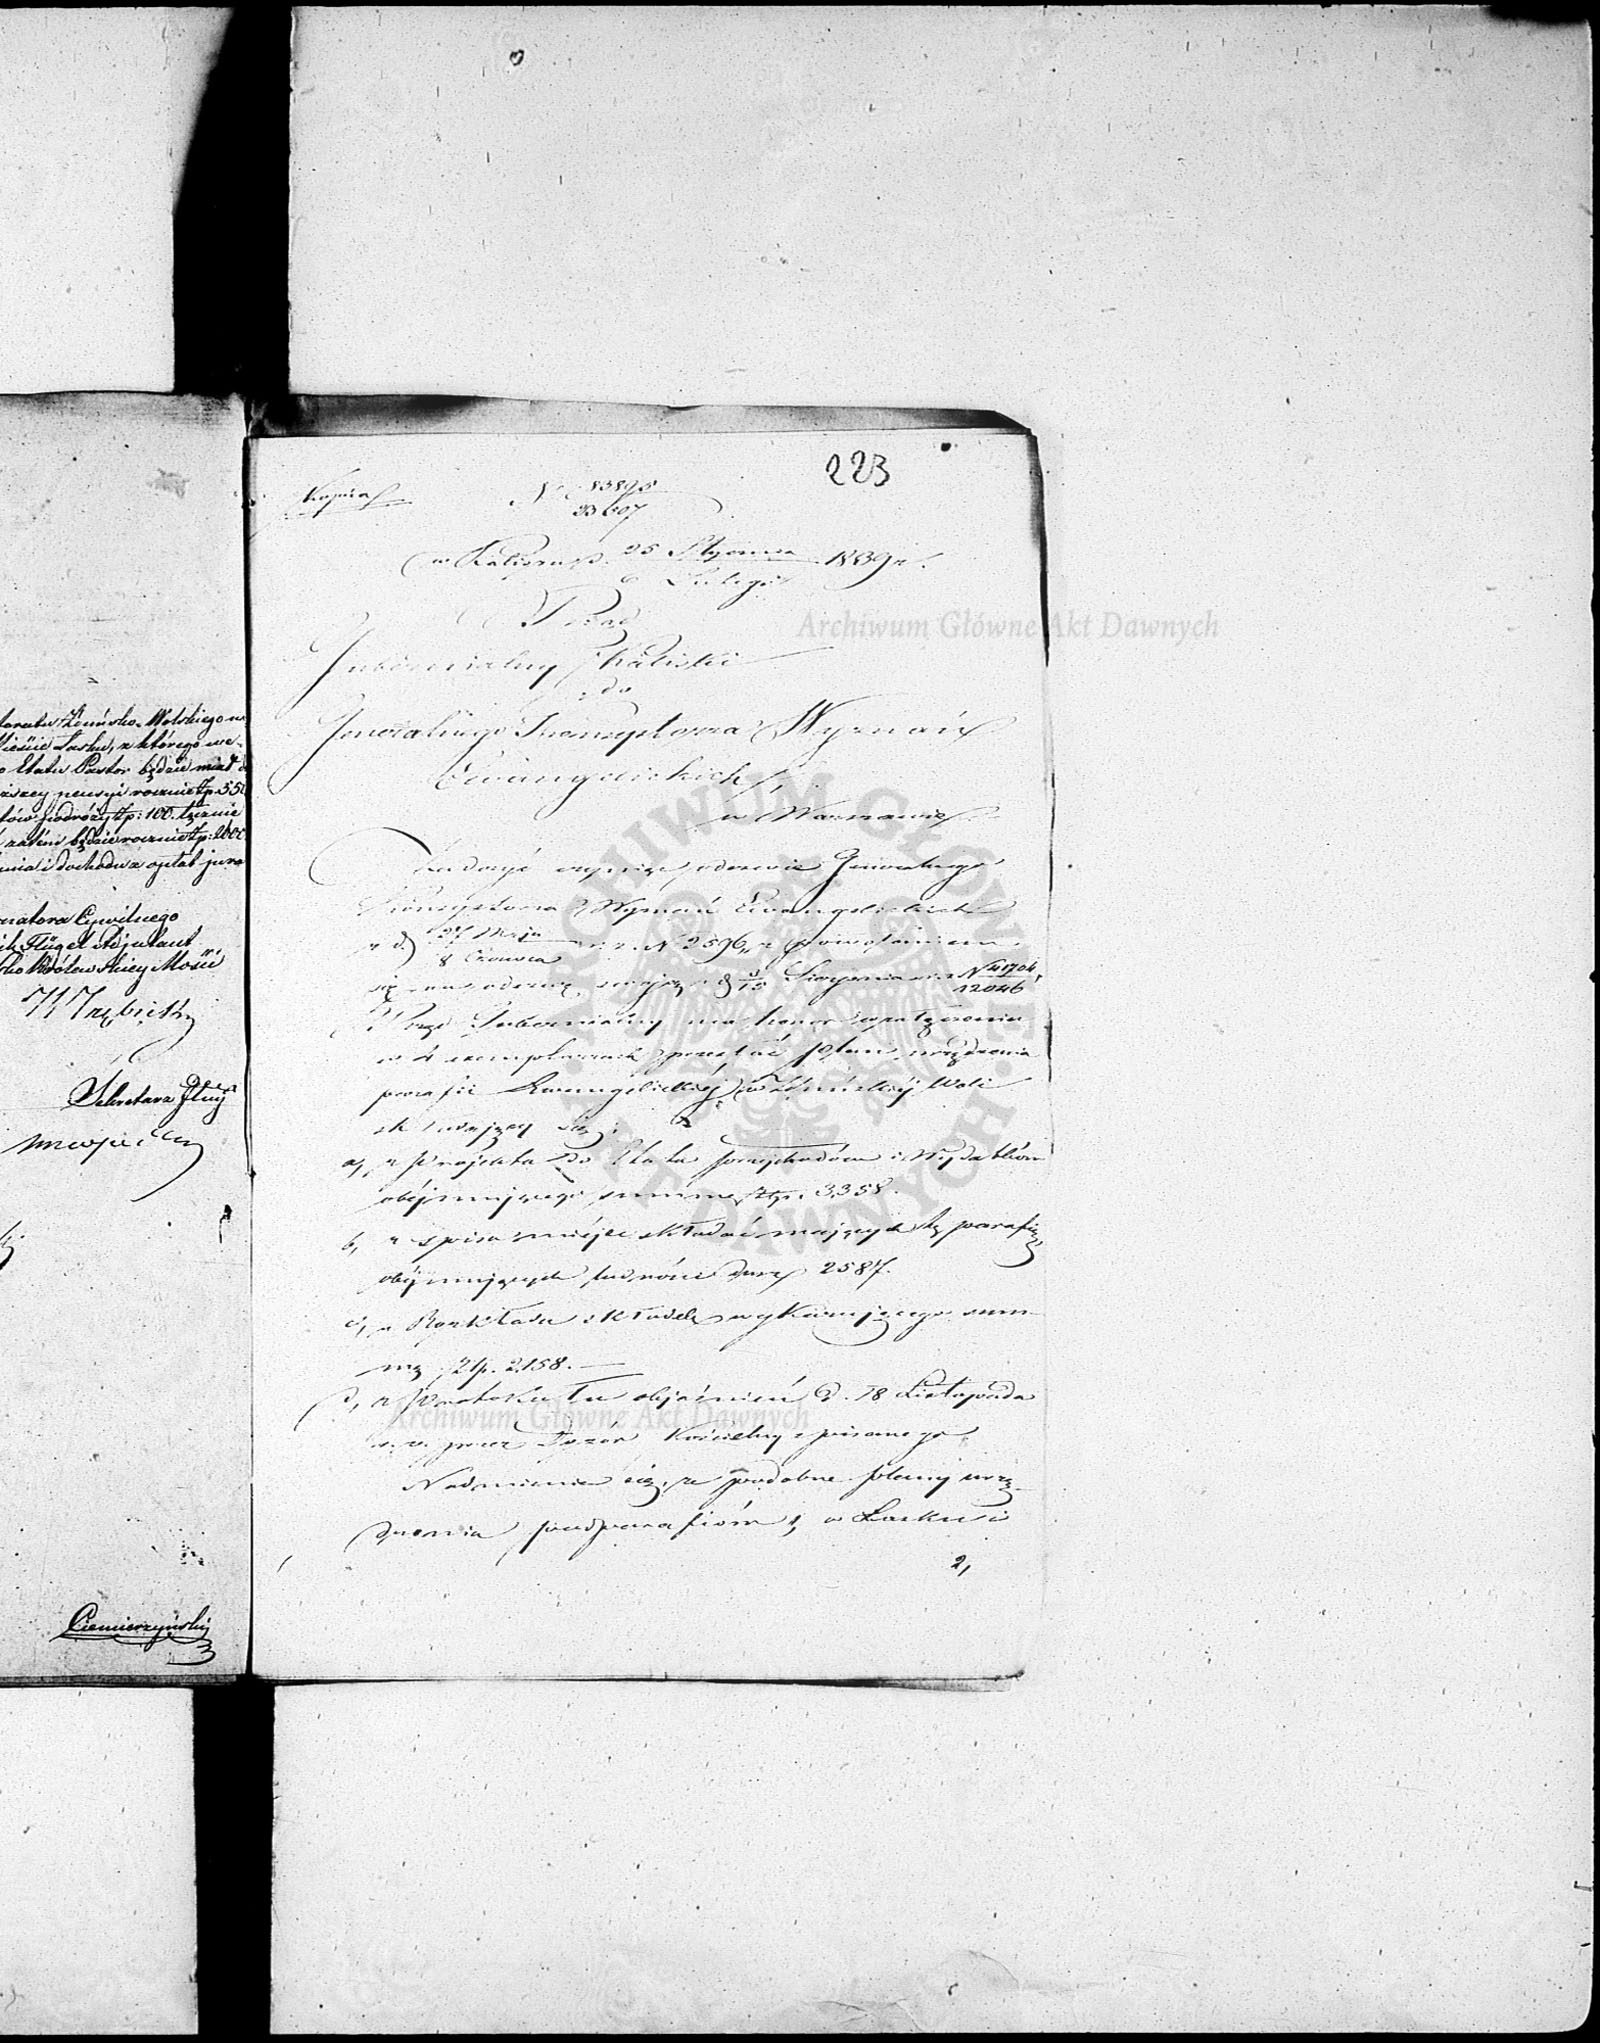 toratu Zduńsko-Wolskiego w
Mieście Łasku, z którego we-
o Etatu Pastor będzie miał d
niższey pensyi rocznie Zp. 550
tów podróży Zp: 100. łącznie
zatém będzie rocznie Zp: 2000
nia i dochodu z opłat jura
natora Cywilnego
ik Flügel Adjutant
sko Królewskiey Mości
Sekretarz Jlny
Ciemierzyński
223
Kopia
No 83895
33607
w Kaliszu d. 25 Stycznia 1839 r.
6 Lutego
Rząd
Gubernialny Kaliski
do
Generalnego Konsystorza Wyznań
Ewangelickich
w Warszawie
Czyniąc odezwie Generalnego
Konsystorza Wyznań Ewangelickich
z d. 27 Maja r. z. N 2596, z powołaniem
8 Czerwca
się na odezwę swoję z d. 3/15 Sierpnia r. z. N 41704,
12046
Rząd Gubernialny ma honor w załączeniu
w 4 exemplarzach przesłać plan urządzenia
parafii Ewangelickiéj w Zduńskiéj Woli
składający się:
a, z Projektu do Etatu przychodów i Wydatków
obéjmującego summę Złp. 3,358.
b, z spisu miéjsc składać mających tę parafię
obéjmujących ludności dusz 2587.
c, z Rozkładu składek wykazującego sum-
mę Złp. 2,158. —
d, z Protokułu objaśnień d. 18 Listopada
r. z. przez Dozór Kościelny spisanego
Nadmienia się, że podobne plany urzą-
dzenia parafiów 1, w Łasku i
2,
Archiwum Główne Akt Dawnych
Archiwum Główne Akt Dawnych
ARCHIWUM GŁÓWNE AKT DAWNYCH